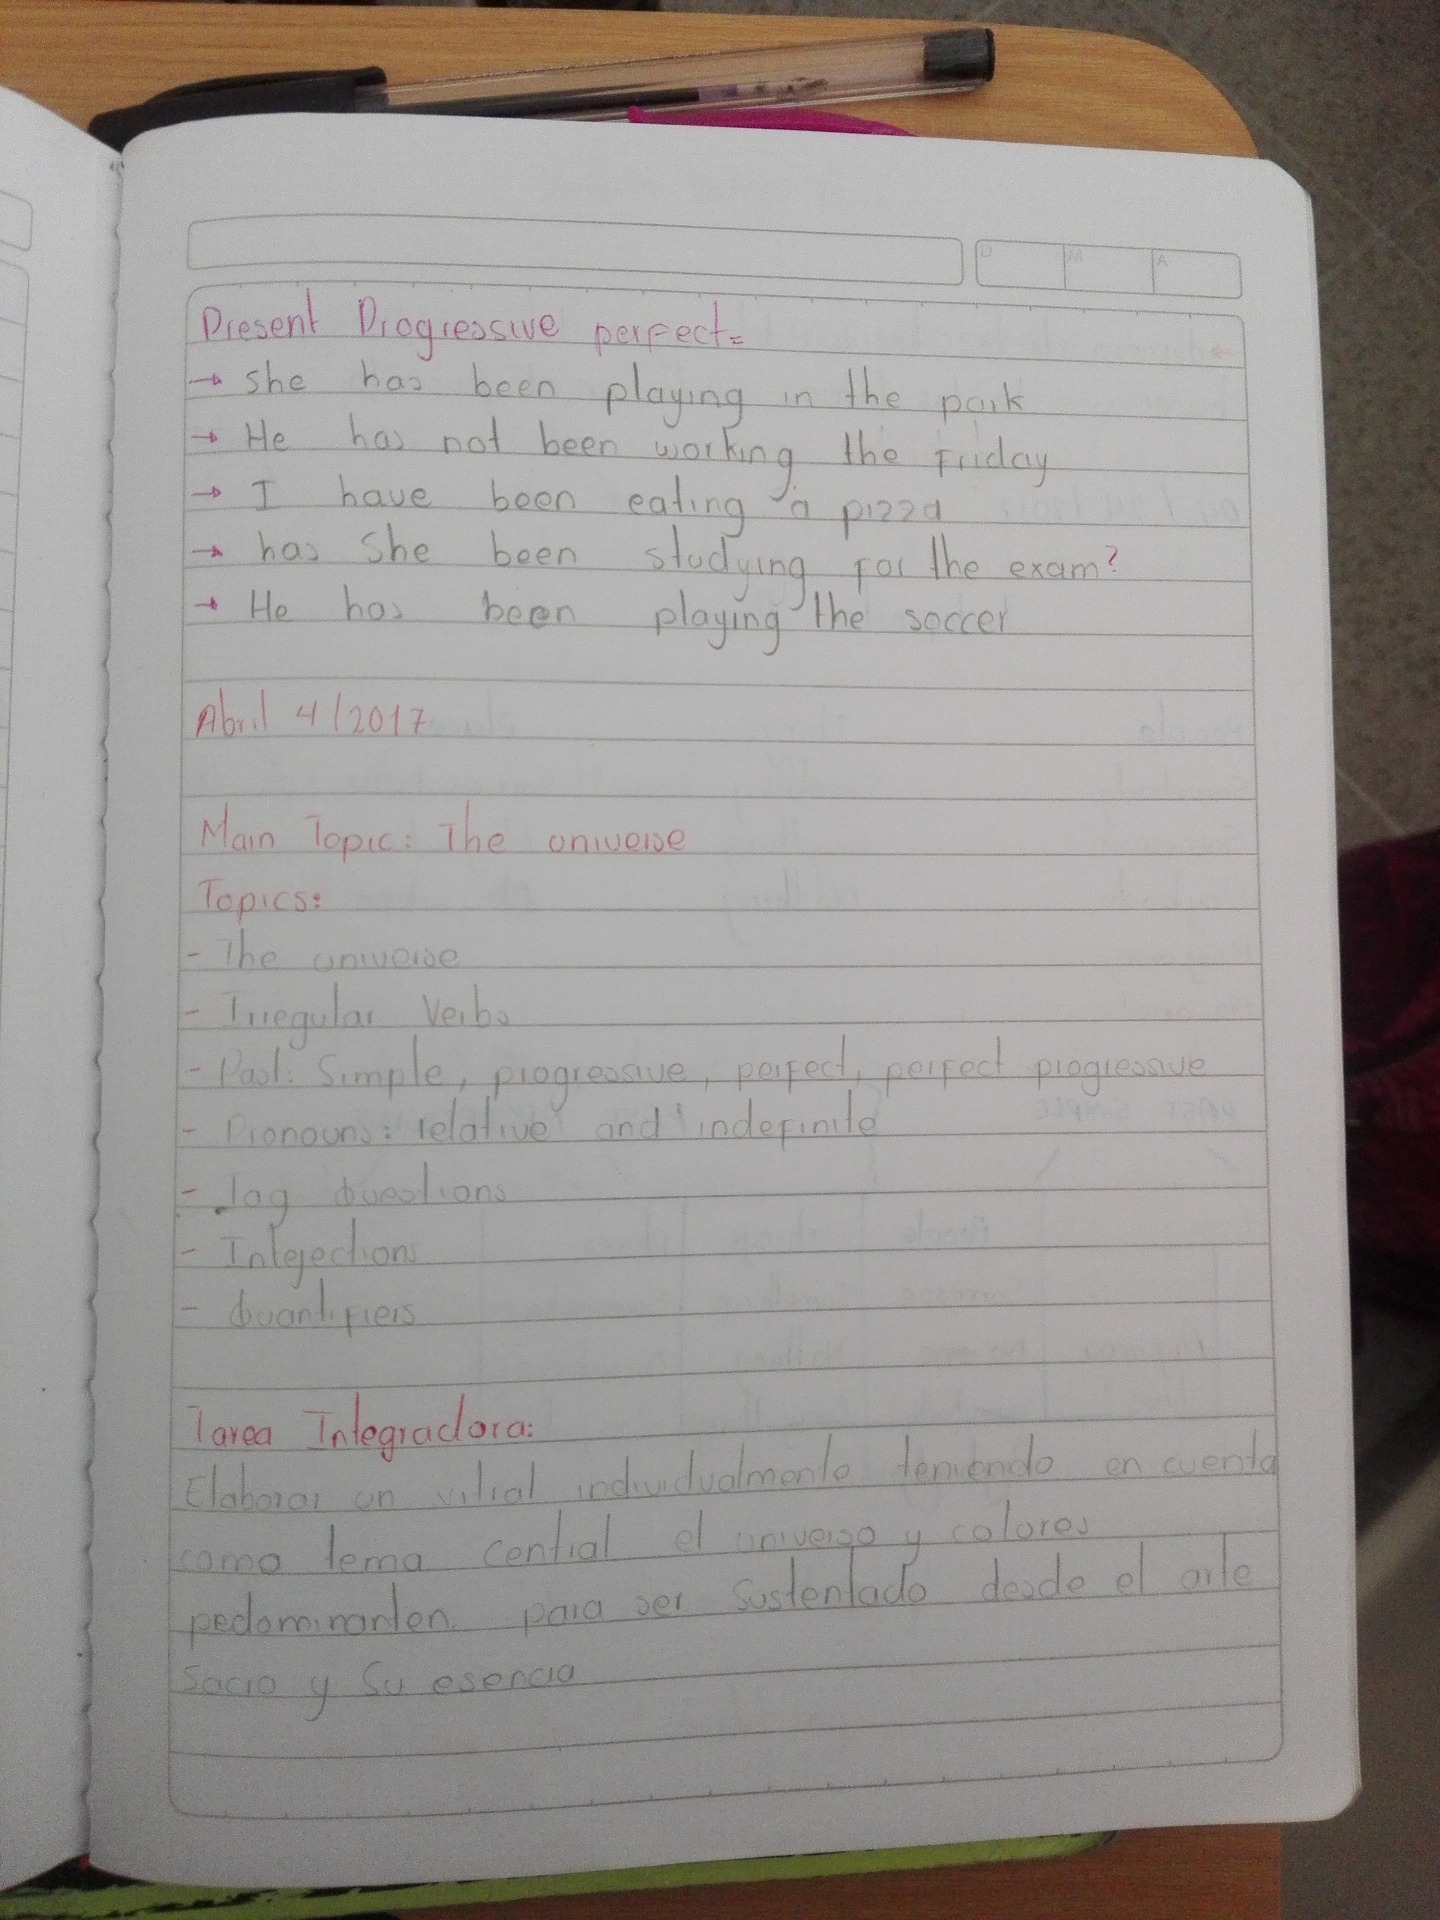 D M A
Present Progressive perfect=
→ She has been playing in the park
→ He has not been working the Friday
→ I have been eating a pizza
→ has She been studying for the exam?
→ He has been playing the soccer
Abril 4/2017
Main Topic: The universe
Topics:
- The universe
- Irregular Verbs
- Past: Simple, progressive, perfect, perfect progressive
- Pronouns: relative and indefinite
- Tag Questions
- Intejections
- Quantifiers
Tarea Integradora:
Elaborar un vitral individualmente teniendo en cuenta
como tema central el universo y colores
pedominanten. para ser Sustentado desde el arte
Sacro y Su esencia